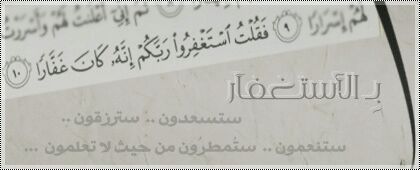 ثُمَّ إِنِّىٓ أَعْلَنتُ لَهُمْ وَأَسْرَرْتُ
لَهُمْ إِسْرَارًا ٩ فَقُلْتُ ٱسْتَغْفِرُوا۟ رَبَّكُمْ إِنَّهُۥ كَانَ غَفَّارًا ١٠
بـ الأستغفار
ستسعدون .. سترزقون ..
ستنعمون .. ستُمطرون من حيث لا تعلمون ...